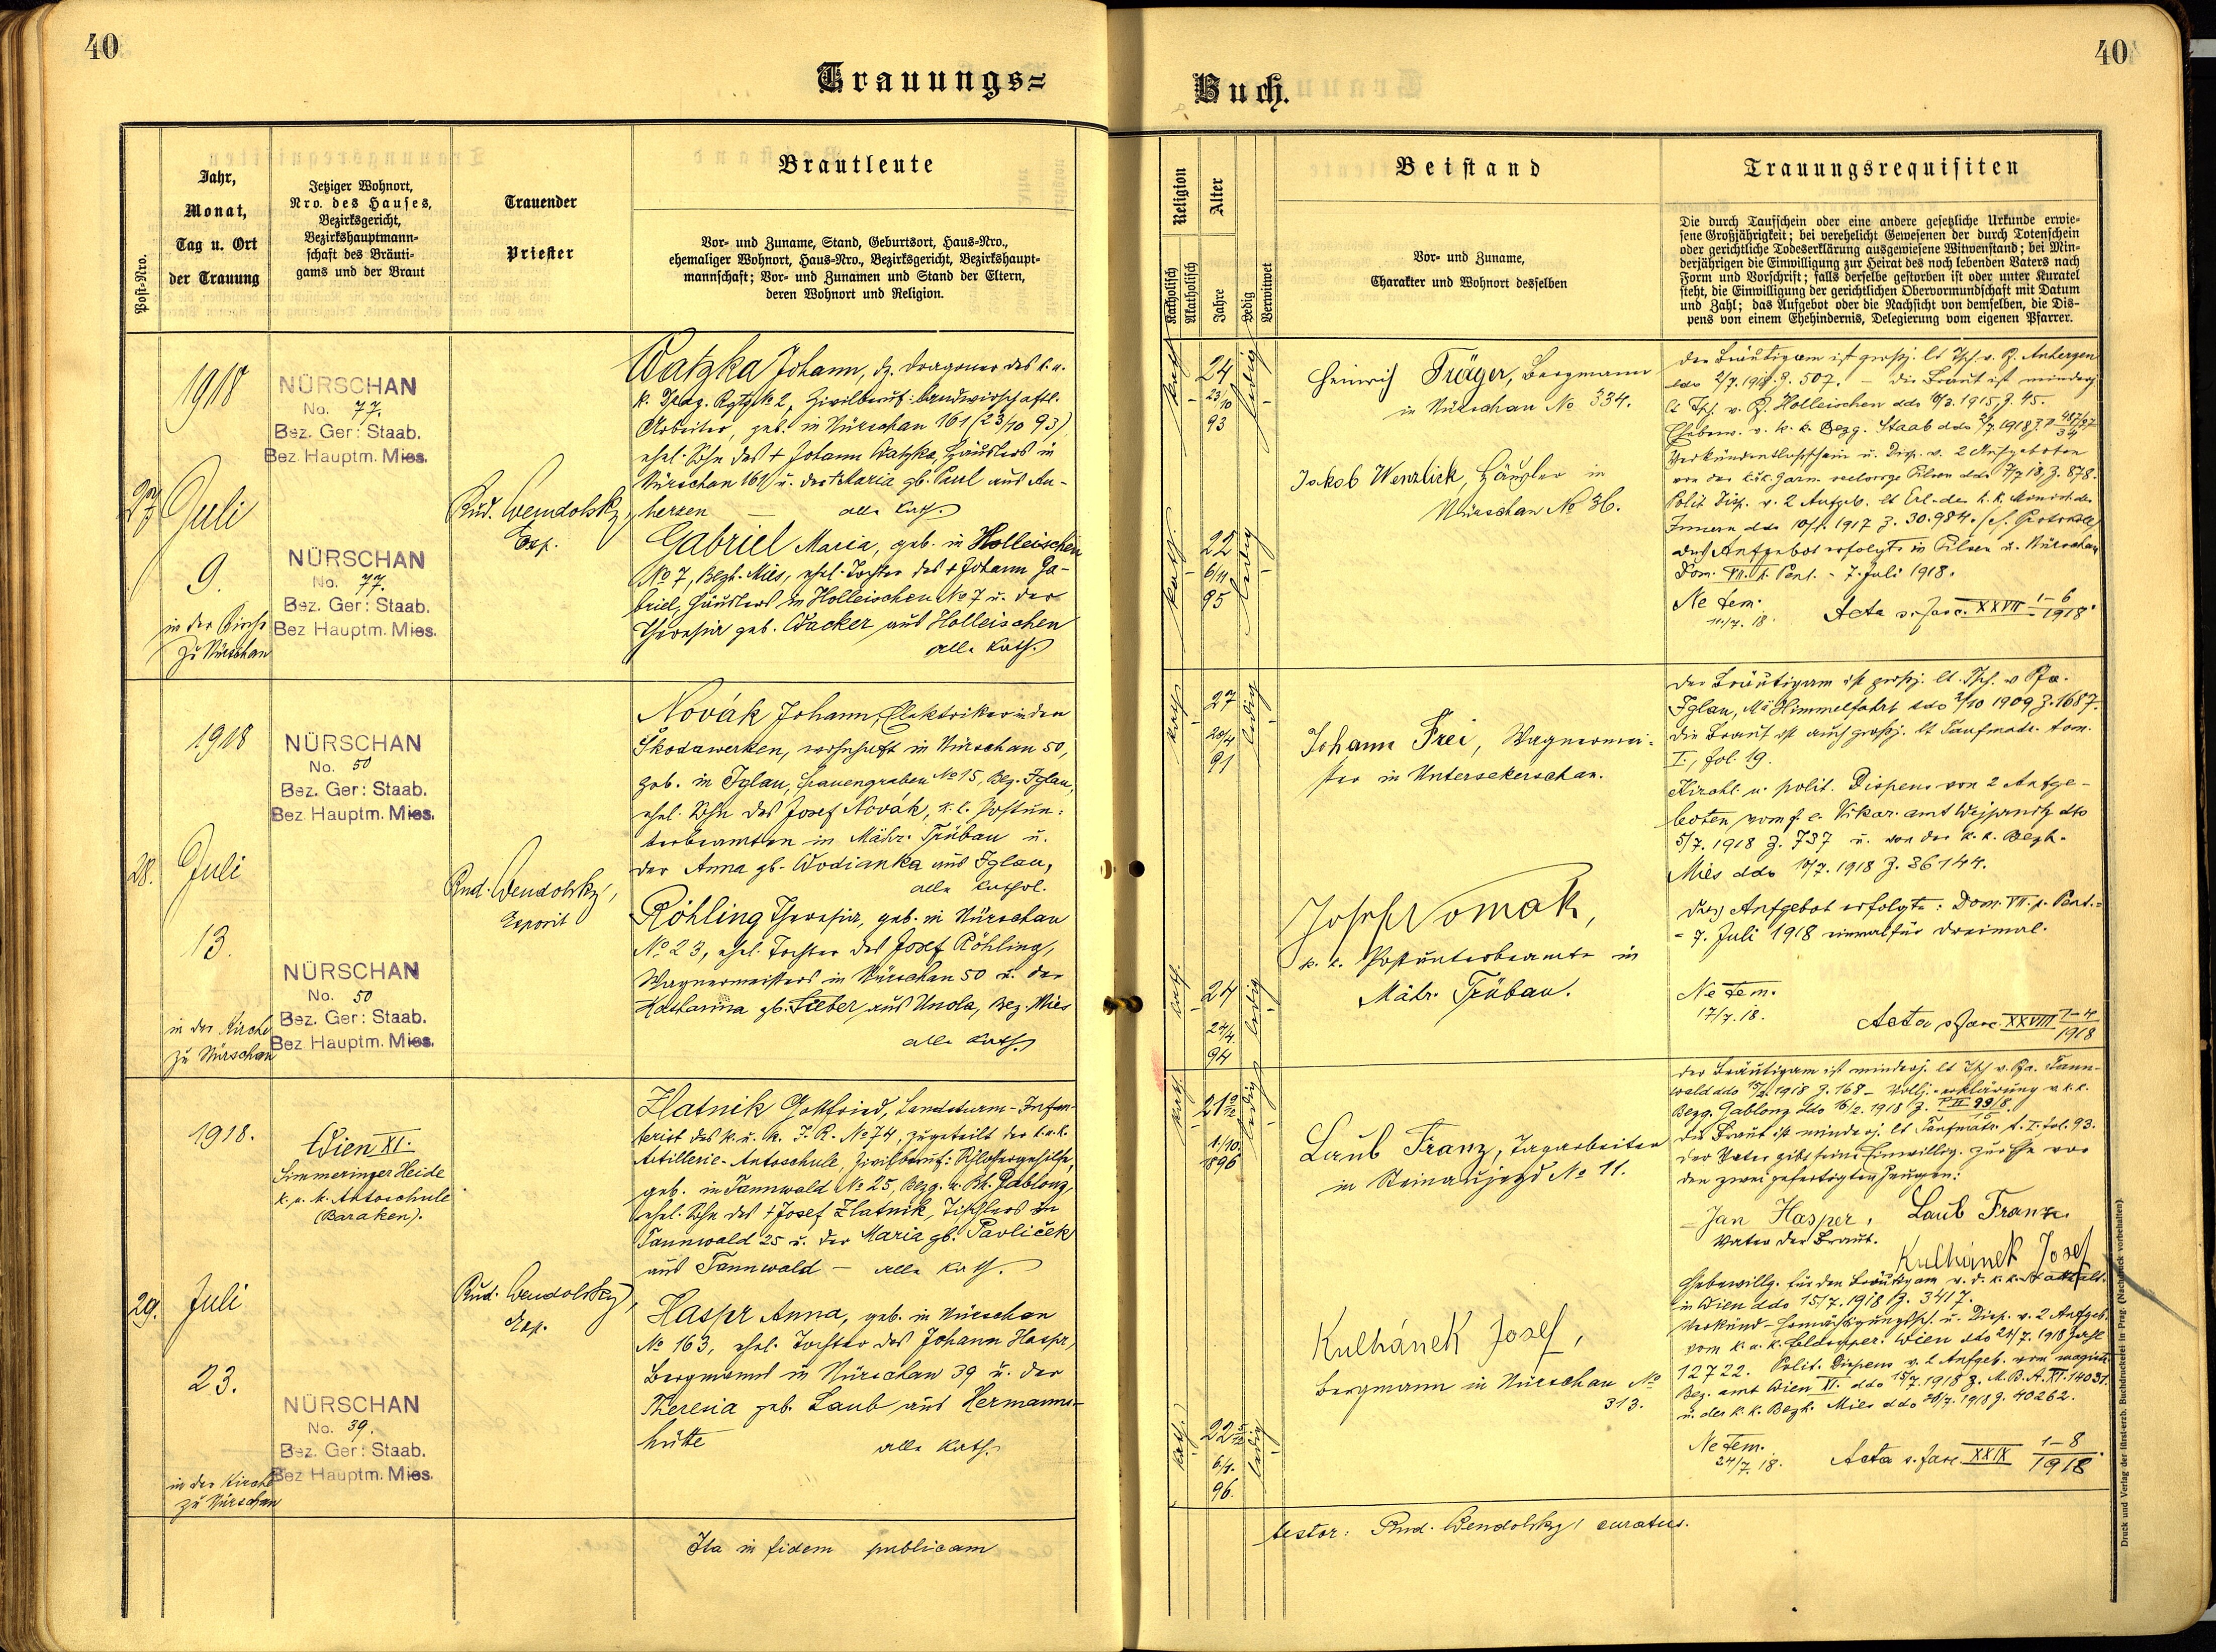 40
40
Trauungs=
Buch.
Post=Nro.
Jahr,
Monat,
Tag u. Ort
der Trauung
Jetziger Wohnort,
Nro. des Hauses,
Bezirksgericht,
Bezirkshauptmann=
schaft des Bräuti=
gams und der Braut
Trauender
Priester
Brautleute
Vor= und Zuname, Stand, Geburtsort, Haus=Nro.,
ehemaliger Wohnort, Haus=Nro., Bezirksgericht, Bezirkshaupt=
mannschaft; Vor= und Zunamen und Stand der Eltern,
deren Wohnort und Religion.
Religion
Katholisch
Akatholisch
Alter
Jahre
Ledig
Verwitwet
Beistand
Vor= und Zuname,
Charakter und Wohnort desselben
Trauungsrequisiten
Die durch Taufschein oder eine andere gesetzliche Urkunde erwie=
sene Großjährigkeit; bei verehelicht Gewesenen der durch Totenschein
oder gerichtliche Todeserklärung ausgewiesene Witwenstand; bei Min=
derjährigen die Einwilligung zur Heirat des noch lebenden Vaters nach
Form und Vorschrift; falls derselbe gestorben ist oder unter Kuratel
steht, die Einwilligung der gerichtlichen Obervormundschaft mit Datum
und Zahl; das Aufgebot oder die Nachsicht von demselben, die Dis=
pens von einem Ehehindernis, Delegierung vom eigenen Pfarrer.
27
1918
Juli
9.
in der Kirche
zu Nürschan
NÜRSCHAN
No. 77.
Bez. Ger: Staab.
Bez. Hauptm. Mies.
NÜRSCHAN
No. 77.
Bez. Ger: Staab.
Bez Hauptm. Mies.
Rud. Wendolsky,
Exp.
Watzka Johann, dz. Dragoner des k. u.
k. Drag. Rgts. № 2, Zivilberuf: landwirschaftl.
Arbeiter, geb. in Nürschan 161 (23/10 93),
ehel. Sohn des + Johann Watzka, Häuslers in
Nürschan 161 u. der Maria gb. Paul aus An-
herzen — alle kath.
Gabriel Maria, geb. in Holleischen
№ 7, Bezh. Mies, ehel. Tochter des + Johann Ga-
briel, Häuslers in Holleischen № 7 u. der
Theresia geb. Wacker aus Holleischen
alle kath.
kath.
24
23/10
93
ledig
kath.
22
6/11
95
ledig
Heinrich Träger, Bergmann
in Nürschan № 334.
Jakob Wenzlick, Häusler in
Nürschan № 36.
Der Bräutigam ist großj. lt Tsch. v. Pf. Anherzen
ddo 2/7. 1918. Z. 507. — Die Braut ist minderj.
lt Tsch. v. Pf. Holleischen ddo 1915, Z. 45.
Verkündentlaßschein u. Disp. v. 2 Aufgeboten
Polit. Disp. v. 2 Aufgeb. lt Erl. des k. k. Minist. des
Innern ddo 10/1. 1917 Z. 30.984.
Das Aufgebot erfolgte in Pilsen u. Nürschan
Dom. VII. p. Pent. = 7. Juli 1918.
Ne tem.
11/7. 18.
Acta s. fasc. XXVII 1-6/1918
28.
1918
Juli
13.
in der Kirche
zu Nürschan
NÜRSCHAN
No. 50
Bez. Ger: Staab.
Bez. Hauptm. Mies.
NÜRSCHAN
No. 50
Bez. Ger: Staab.
Bez Hauptm. Mies.
Rud. Wendolsky,
Exposit
Novák Johann, Elektriker in den
Škodawerken, wohnhaft in Nürschan 50,
geb. in Iglau, Frauengraben № 15, Bez. Iglau,
ehel. Sohn des Josef Novák, k. k. Postun-
terbeamten in Mähr. Trübau u.
der Anna gb. Wodianka aus Iglau,
alle kathol.
Röhling Theresia, geb. in Nürschan
№ 23, ehel. Tochter des Josef Röhling,
Wagnermeisters in Nürschan 50 u. der
Katharina gb. Lieber aus Unola, Bez. Mies
alle kath.
kath
27
20/4
91
ledig
kath.
24
24/4.
94
ledig
Johann Frei, Wagnermei-
ster in Untersekerschan.
Josef Nowak,
k. k. Postunterbeamte in
Mähr. Trübau.
Der Bräutigam ist großj. lt. Tsch. v. Pfa.
Iglau, Ma Himmelfahrt ddo 2/10 1909, Z. 1687.
Die Braut ist auch großj. lt Taufmatr. tom.
I., fol. 19.
Kirchl. u. polit. Dispens von 2 Aufge-
boten vom f. e. Vikar. amt Wejprnitz ddo
5/7. 1918 Z. 737 u. von der k. k. Bezh.
Mies ddo 10/7. 1918 Z. 36144.
Das Aufgebot erfolgte: Dom. VII. p. Pent. =
= 7. Juli 1918 einmal für dreimal.
Ne tem.
17/7. 18.
Acta s fasc XXVIII 1-4/1918
29.
1918.
Juli
23.
in der Kirche
zu Nürschan
Wien XI.
Simmeringer Heide
k. u. k. Autoschule
(Baraken).
NÜRSCHAN
No. 39.
Bez. Ger: Staab.
Bez Hauptm. Mies.
Rud. Wendolsky,
Exp.
Zlatnik Gottfried, Landsturm-Infan-
terist des k. u. k. I. R. № 74, zugeteilt der k. u. k.
Artillerie-Autoschule, Zivilberuf: Schlossergehilfe,
geb. in Tannwald № 25, Bezg. u. Bh. Gablonz,
ehel. Sohn des + Josef Zlatnik, Tischlers in
Tannwald 25 u. der Maria gb. Pavliček
aus Tannwald — alle kath.
Haspr Anna, geb. in Nürschan
№ 163, ehel. Tochter des Johann Haspr,
Bergmanns in Nürschan 39 u. der
Theresia geb. Laub aus Hermanns-
hütte alle kath.
kath.
21 9/12
1./10.
1896
ledig
kath.
22 5/12
6/1.
96.
ledig
Laub Franz, Tagarbeiter
in Steinaujezd № 11.
Kulhánek Josef,
Bergmann in Nürschan №
313.
Der Bräutigam ist minderj. lt Tsch v. Pfa. Tann-
wald ddo 15/2. 1918 Z. 168 — Vollj.-erklärung v. k. k.
Bezg. Gablonz ddo 16/2. 1918 Z.
Die Braut ist minderj. lt Taufmatr. t. I. fol. 93.
Der Vater gibt seine Einwillig. zur Ehe vor
den zwei gefertigten Zeugen:
Jan Hasper, Laub Franz.
Vater der Braut. Kulhánek Josef
in Wien ddo 15/7. 1918 Z. 3417.
12722. Polit. Dispens v. 2 Aufgeb. vom magistr.
Bez. amt Wien XI. ddo 15/7. 1918 Z. M. B. A. XI. 14031.
u. der k. k. Bezh. Mies ddo 20/7. 1918 Z. 40262.
Ne tem.
24/7. 18.
Acta s. fasc. XXIX 1-8/1918.
Ita in fidem publicam
testor: Rud. Wendolsky, curatus.
Druck und Verlag der fürst-erzb. Buchdruckerei in Prag. (Nachdruck vorbehalten)